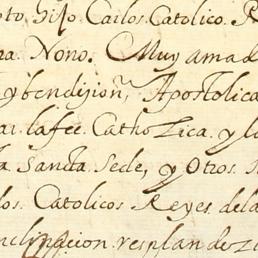 oto, Hijo Carlos Catolico. R
ra. Nono. Muy amad
y bendijion, Apostolica
la fee. Catholica. y l
Sancta Sede, y Otros
los. Catolicos Reyes. dela
nclinacion. resplandezi